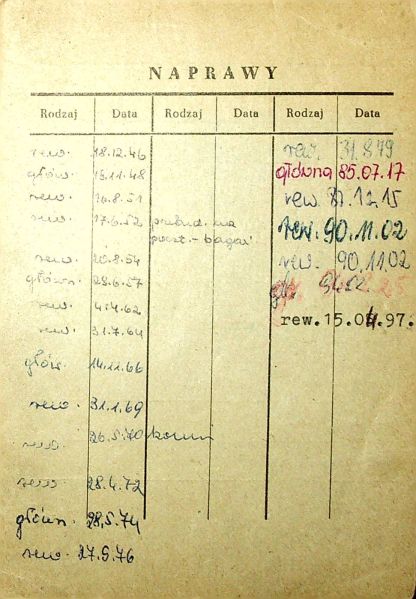 NAPRAWY
Rodzaj Data Rodzaj Data Rodzaj Data
rew. 18.12.46
główn. 15.11.48
rew. 16.8.51
rew. 17.6.52 przebud. na
poczt.-bagaż.
rew. 20.8.54
główn. 28.6.57
rew. 4.4.62
rew. 31.7.64
głów. 14.11.66
rew 31.1.69
rew. 26.5.70
rew 28.4.72
główn. 28.5.74
rew. 27.5.76
rew. 31.8.79
główna 85.07.17
rew. 87.12.15
rew. 90.11.02
rew. 90.11.02
rew.15.04.97.